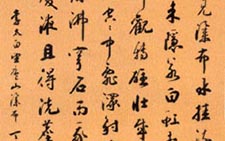 見瀑布水挂流
來隱若白虹起
觀勢轉雄壯哉
空中亂潈射
沫沸穹石而我
液且得洗塵
李太白望廬山瀑布 丁